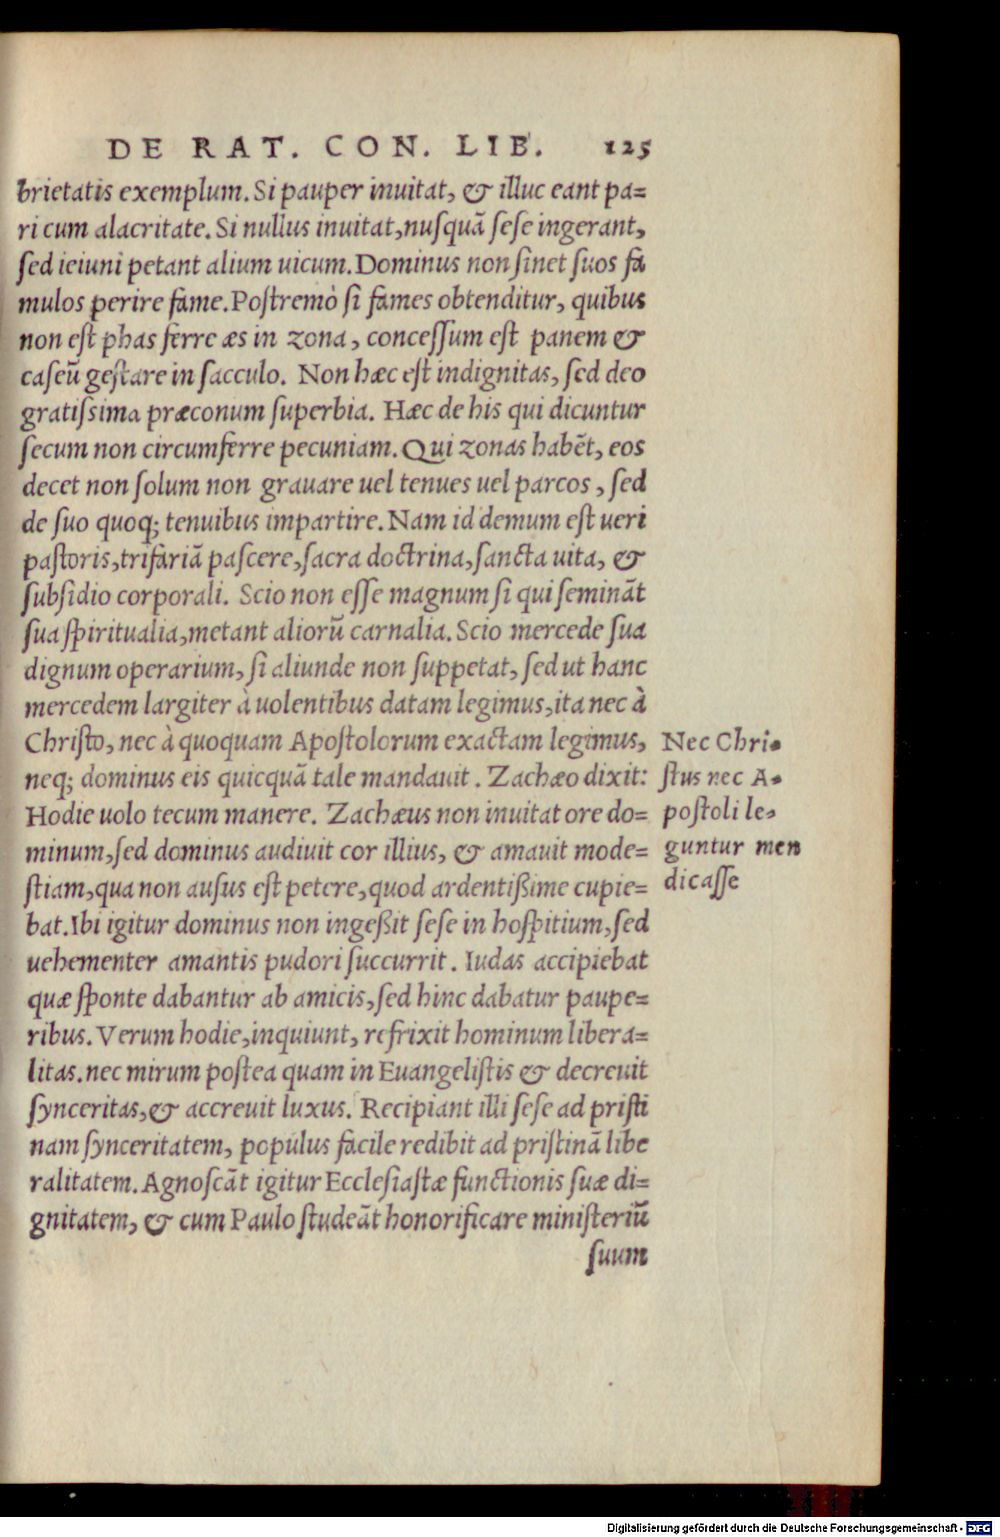 DE RAT. CON. LIB. 125
brietatis exemplum. Si pauper inuitat, & illuc eant pa=
ri cum alacritate. Si nullus inuitat, nuſquā ſeſe ingerant,
ſed ieiuni petant alium uicum. Dominus non ſinet ſuos fa
mulos perire fame. Poſtremò ſi fames obtenditur, quibus
non eſt phas ferre æs in zona, conceſſum eſt panem &
caſeū geſtare in ſacculo. Non hæc eſt indignitas, ſed deo
gratiſsima præconum ſuperbia. Hæc de his qui dicuntur
ſecum non circumferre pecuniam. Qui zonas habēt, eos
decet non ſolum non grauare uel tenues uel parcos, ſed
de ſuo quoq; tenuibus impartire. Nam id demum eſt ueri
paſtoris, trifariā paſcere, ſacra doctrina, ſancta uita, &
ſubſidio corporali. Scio non eſſe magnum ſi qui ſemināt
ſua ſpiritualia, metant aliorū carnalia. Scio mercede ſua
dignum operarium, ſi aliunde non ſuppetat, ſed ut hanc
mercedem largiter à uolentibus datam legimus, ita nec à
Chriſto, nec à quoquam Apoſtolorum exactam legimus,
neq; dominus eis quicquā tale mandauit. Zachæo dixit:
Hodie uolo tecum manere. Zachæus non inuitat ore do=
minum, ſed dominus audiuit cor illius, & amauit mode=
ſtiam, qua non auſus eſt petere, quod ardentißime cupie=
bat. Ibi igitur dominus non ingeßit ſeſe in hoſpitium, ſed
uehementer amantis pudori ſuccurrit. Iudas accipiebat
quæ ſponte dabantur ab amicis, ſed hinc dabatur paupe=
ribus. Verum hodie, inquiunt, refrixit hominum libera=
litas. nec mirum poſtea quam in Euangeliſtis & decreuit
ſynceritas, & accreuit luxus. Recipiant illi ſeſe ad priſti
nam ſynceritatem, populus facile redibit ad priſtinā libe
ralitatem. Agnoſcāt igitur Eccleſiaſtæ functionis ſuæ di=
gnitatem, & cum Paulo ſtudeāt honorificare miniſteriū
ſuum
Nec Chri=
ſtus nec A=
poſtoli le=
guntur men
dicaſſe
Digitalisierung gefördert durch die Deutsche Forschungsgemeinschaft - DFG